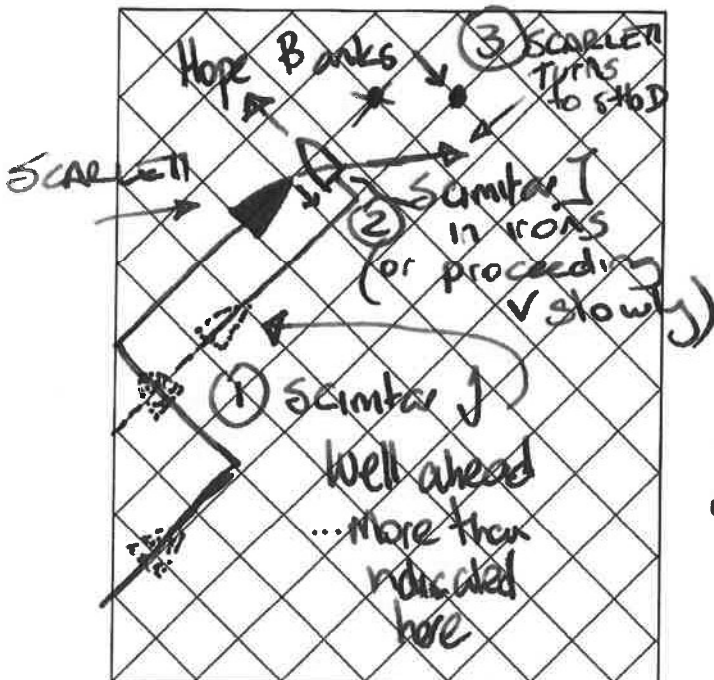 Hope Banks
③ SCARLETT
TURNS
to STBD
SCARLETT
② Scimitar J
in irons
(or proceeding
v slowly)
① Scimitar J
Well ahead
... More than
ndicated
here